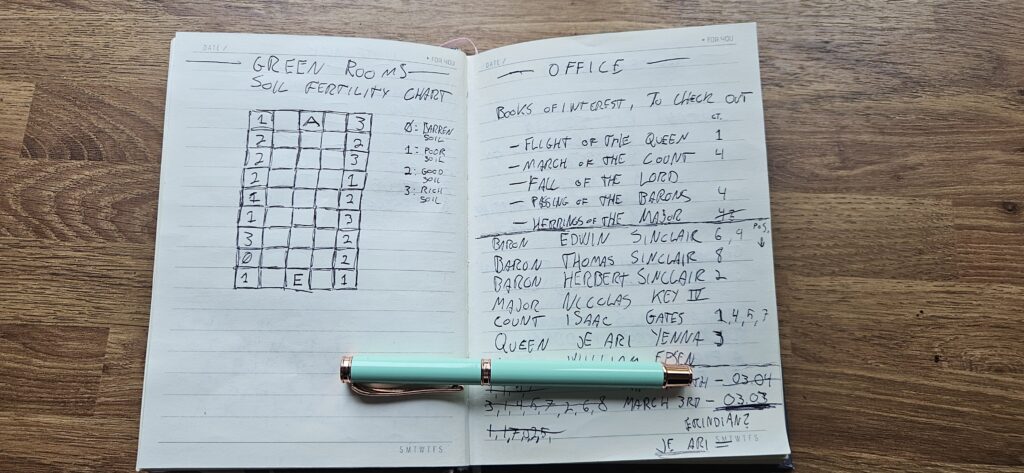 DATE /
• FOR YOU
GREEN ROOMS
SOIL FERTILITY CHART
1 A 3
2 2
2 3
2 1
1 2
1 3
3 2
0 2
1 E 1
0: BARREN
SOIL
1: POOR
SOIL
2: GOOD
SOIL
3: RICH
SOIL
SMTWTFS
DATE /
• FOR YOU
OFFICE
BOOKS OF INTEREST, TO CHECK OUT
CT.
- FLIGHT OF THE QUEEN 1
- MARCH OF THE COUNT 4
- FALL OF THE LORD
- PASSING OF THE BARONS 4
- HERRINGS OF THE MAJOR
BARON EDWIN SINCLAIR 6, 9 POS.
BARON THOMAS SINCLAIR 8
BARON HERBERT SINCLAIR 2
MAJOR NICOLAS KEY IV
COUNT ISAAC GATES 1,4,5,7
QUEEN JE ARI YENNA 3
WILLIAM
TH - 03.04
3,1,4,5,7,2,6,8 MARCH 3RD - 03.03
ERINDIAN?
JE ARI =
SMTWTFS